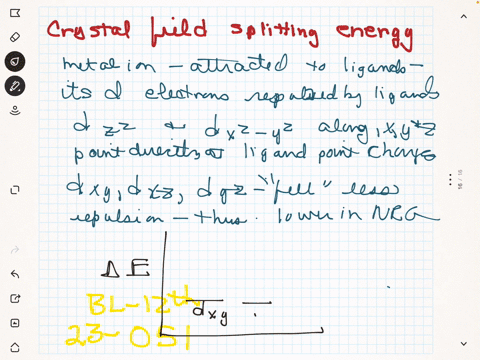 Crystal field splitting energy
metal ion – attracted to ligands –
its d electrons repulsed by ligands
d z² & d x²–y² along x, y & z
point directly at ligand point charge
dxy, dxz, dyz – "feel" less
repulsion – thus lower in NRG
Δ E
BL–12th
dxy
23–051